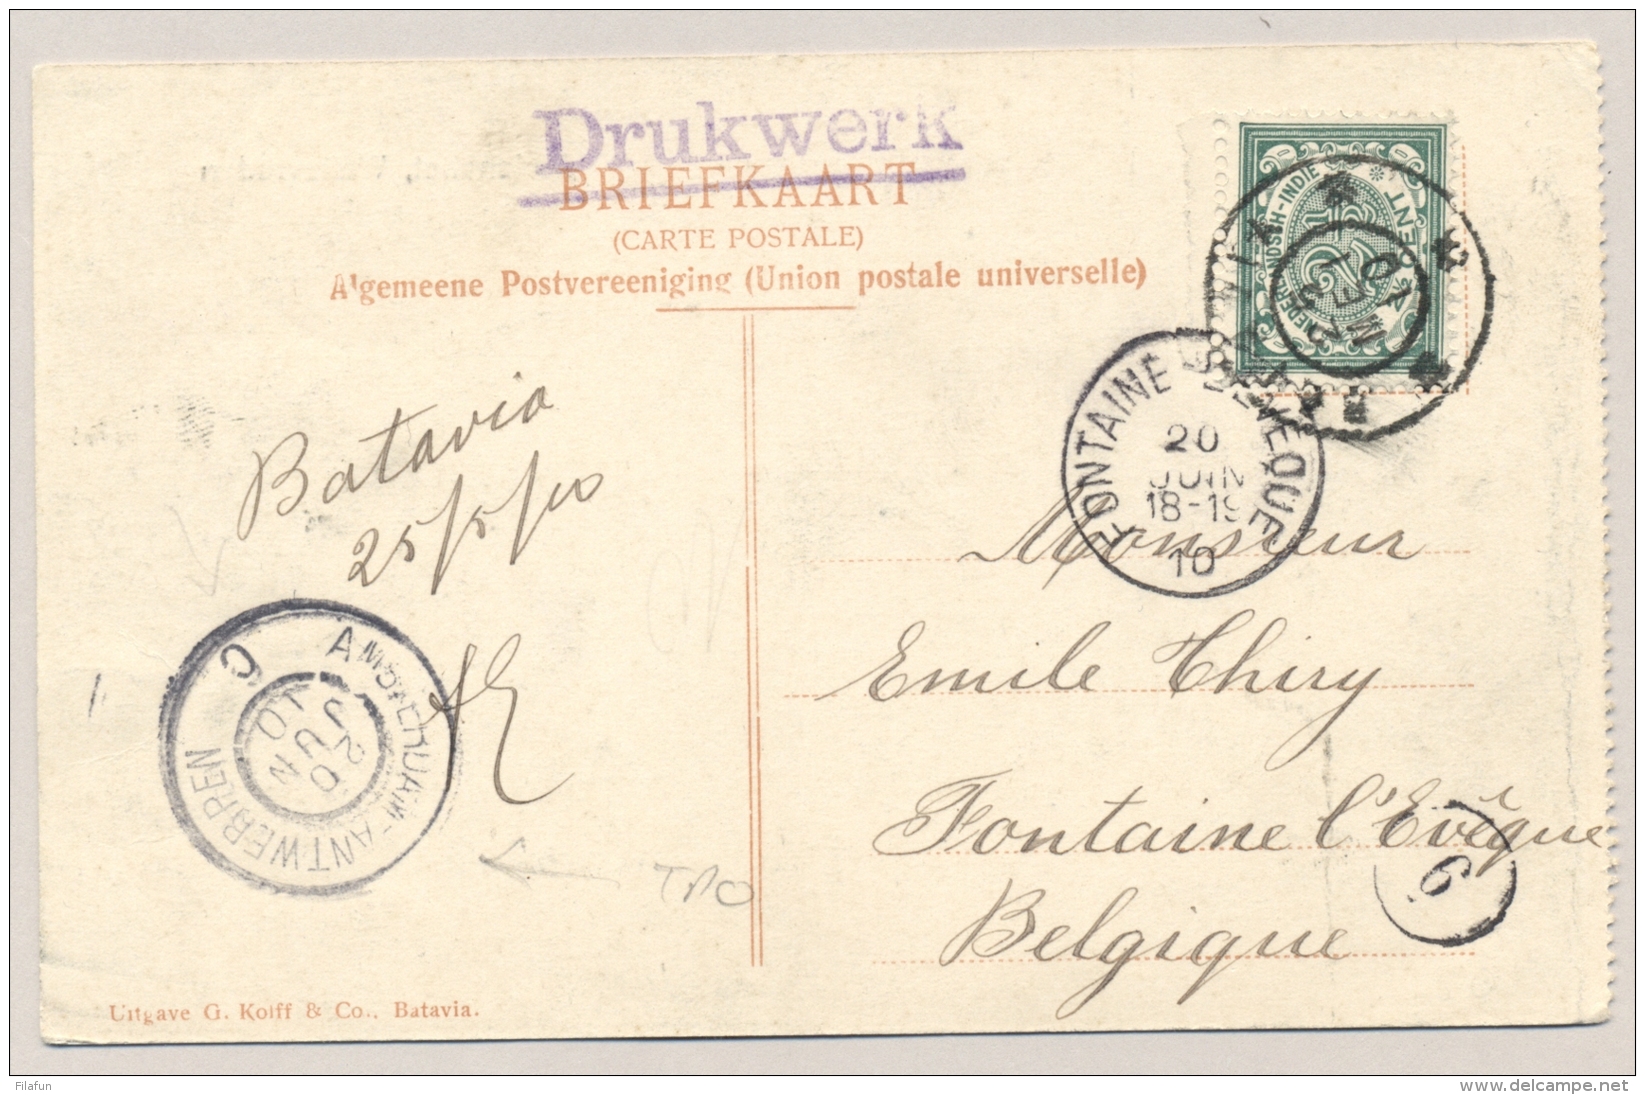 Drukwerk
BRIEFKAART
(CARTE POSTALE)
Algemeene Postvereeniging (Union postale universelle)
NEDERL. INDIE
CENT
2½
10
FONTAINE L'EVEQUE
20
JUIN
18-19
10
Batavia
25/5/10
Monsieur
Emile Thiry
Fontaine l'Evêque
Belgique
6
AMSTERDAM-ANTWERPEN C
20 JUN 10
TPO
Uitgave G. Kolff & Co., Batavia.
Filafun
www.delcampe.net